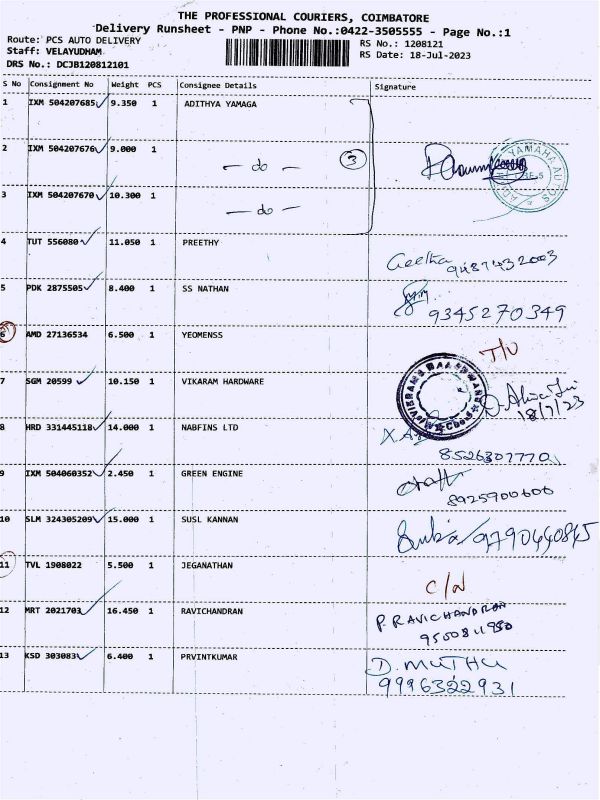 THE PROFESSIONAL COURIERS, COIMBATORE
Delivery Runsheet - PNP - Phone No.:0422-3505555 - Page No.:1
Route: PCS AUTO DELIVERY
RS No.: 1208121
Staff: VELAYUDHAM
RS Date: 18-Jul-2023
DRS No.: DCJB120812101
S No Consignment No Weight PCS Consignee Details Signature
1 IXM 504207685 9.350 1 ADITHYA YAMAGA
2 IXM 504207676 9.000 1 - do - 3
3 IXM 504207670 10.300 1 - do -
4 TUT 556080 11.050 1 PREETHY
Geetha
9487432003
5 PDK 2875505 8.400 1 SS NATHAN
9345270349
6 AMD 27136534 6.500 1 YEOMENSS
7 SGM 20599 10.150 1 VIKARAM HARDWARE
18/7/23
8 HRD 331445118 14.000 1 NABFINS LTD
8526307770
9 IXM 504060352 2.450 1 GREEN ENGINE
8925900606
10 SLM 324305209 15.000 1 SUSL KANNAN
9790440845
11 TVL 1908022 5.500 1 JEGANATHAN
C/N
12 MRT 2021703 16.450 1 RAVICHANDRAN
P. RAVICHANDRAN
13 KSD 303083 6.400 1 PRVINTKUMAR
D. MUTHU
9996322931